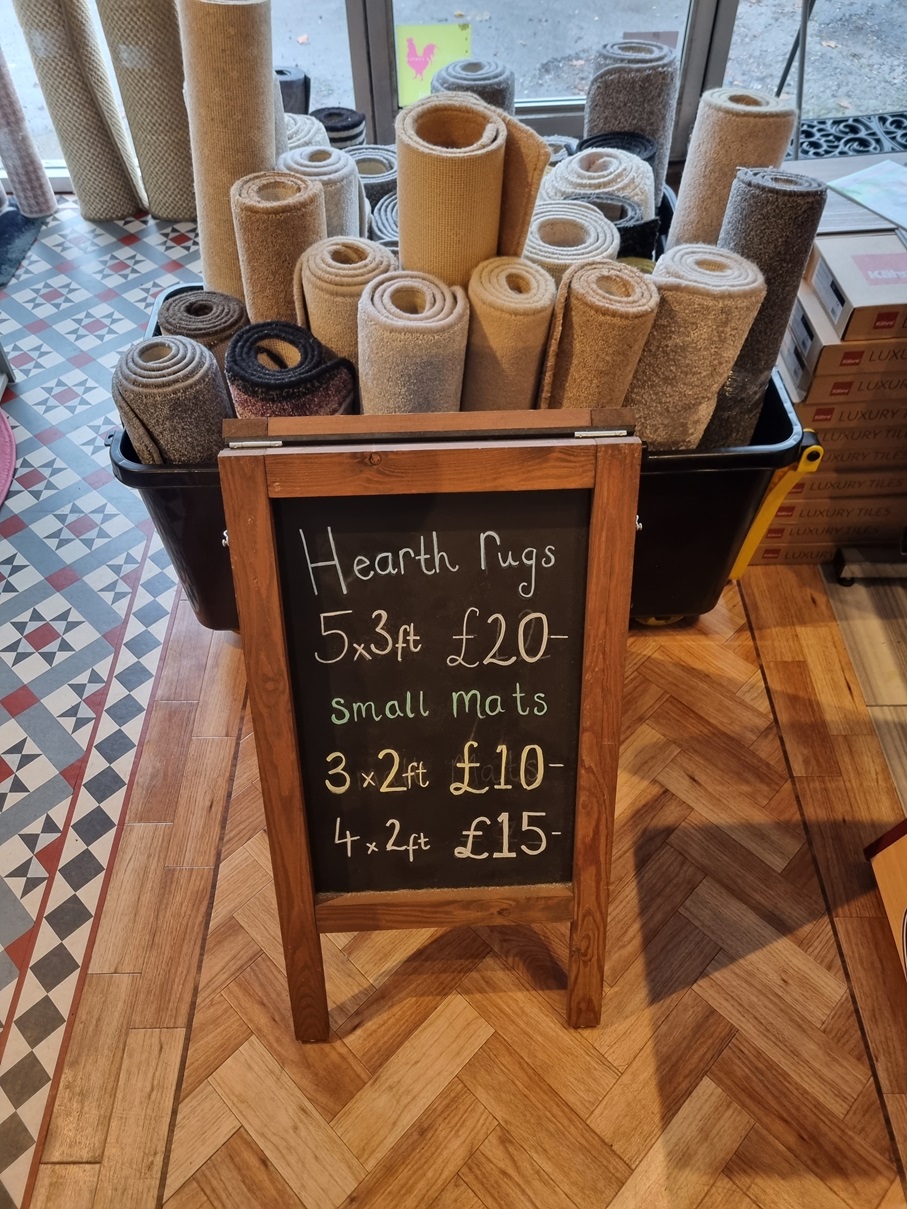 Hearth rugs
5x3ft £20-
small mats
3x2ft £10-
4x2ft £15-
Kährs
LUXURY
LUXURY
LUXURY TILES
LUXURY TILES
LUXURY TILES
LUXURY TILES
LUXURY TILES
LUXURY TILES